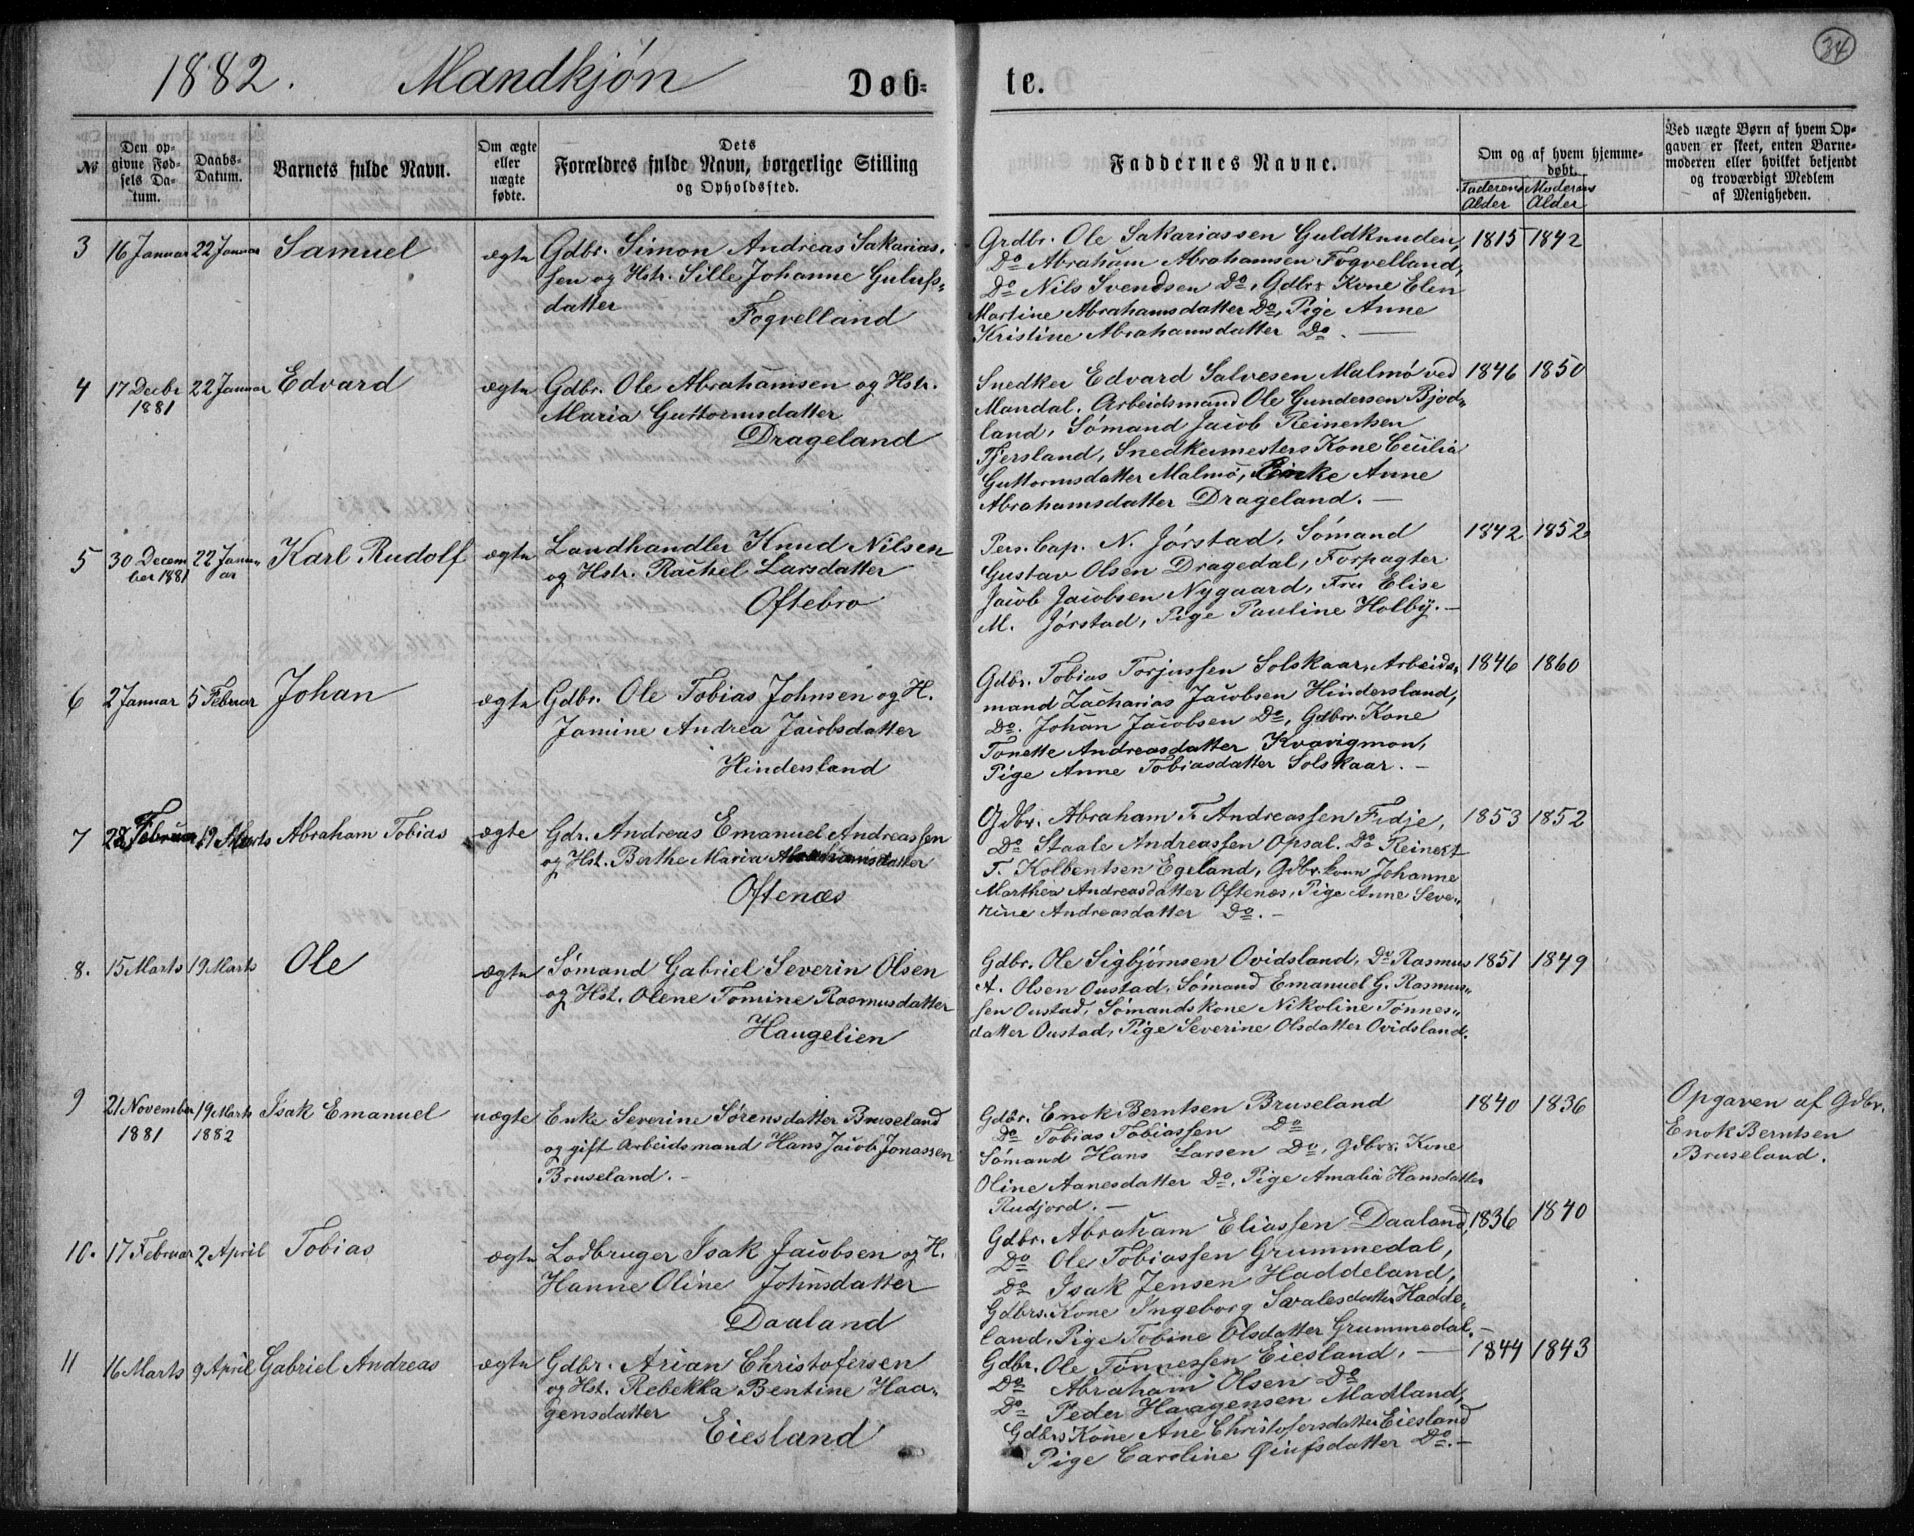 34
1882. Mandkjøn Døb-
te.
№
Den op-
givne Fød-
sels Da-
tum.
Daabs-
Datum.
Barnets fulde Navn.
Om ægte
eller
uægte
fødte.
Dets
Forældres fulde Navn, borgerlige Stilling
og Opholdssted.
Faddernes Navne.
Om og af hvem hjemme-
døbt.
Faderens
Alder
Moderens
Alder
Ved uægte Børn af hvem Op-
gaven er skeet, enten Barne-
moderen eller hvilket bekjendt
og troværdigt Medlem
af Menigheden.
3 16 Januar 22 Januar Samuel ægte
Gdbr. Simon Andreas Sakarias-
sen og Hstr. Sille Johanne Gulufs-
datter
Fogvelland
Grdbr. Ole Sakariassen Guldknuden,
Do Abraham Abrahamsen Fogvelland,
Do Nils Svendsen Do, Gdbrs Kone Elen
Martine Abrahamsdatter Do, Pige Anne
Kristine Abrahamsdatter Do. —
1815 1842
4 17 Decbr 22 Januar Edvard ægte
1881
Gdbr. Ole Abrahamsen og Hstr.
Maria Guttormsdatter
Drageland
Snedker Edvard Salvesen Malmø ved
Mandal. Arbeidsmand Ole Gundersen Bjod-
land, Sømand Jacob Reinertsen
Tjersland, Snedkermesters Kone Cecilia
Guttormsdatter Malmø, Enke Anne
Abrahamsdatter Drageland. —
1846 1850
5 30 Decem 22 Janu- Karl Rudolf ægte
ber 1881 ar
Landhandler Knud Nilsen
og Hstr. Rachel Larsdatter
Oftebro
Pers. Cap. N. Jørstad, Sømand
Gustav Olsen Dragedal, Forpagter
Jacob Jacobsen Nygaard, Fru Elise
M. Jørstad, Pige Pauline Holby. —
1842 1852
6 2 Januar 5 Februar Johan ægte
Gdbr. Ole Tobias Johnsen og H.
Jamine Andrea Jacobsdatter
Hindersland
Gdbr. Tobias Torjussen Solskaar, Arbeids-
mand Zacharias Jacobsen Hindersland,
Do. Johan Jacobsen Do, Gdbrs. Kone
Tonette Andreasdatter Kvavigmon,
Pige Anne Tobiasdatter Solskaar. —
1846 1860
7 28 Februar 19 Marts Abraham Tobias ægte
Gdr. Andreas Emanuel Andreassen
og Hst. Berthe Maria Abrahamsdatter
Oftenæs
Gdbr. Abraham T. Andreassen Fidje,
Do Staale Andreassen Opsal. Do Reinert
T. Kolbentsen Egeland, Gdbr. kone Johanne
Marthea Andreasdatter Oftenæs, Pige Anne Seve-
rine Andreasdatter Do. —
1853 1852
8. 15 Marts 19 Marts Ole ægte
Sømand Gabriel Severin Olsen
og Hst. Olene Tomine Rasmusdatter
Haugelien
Gdbr. Ole Sigbjørnsen Ovidsland, Do Rasmus
A. Olsen Oustad, Sømand Emanuel G. Rasmus-
sen Oustad, Sømandskone Nikoline Tønnes-
datter Oustad, Pige Severine Olsdatter Ovidsland.
1851 1849
9 21 November 19 Marts Isak Emanuel uægte
1881 1882
Enke Severine Sørensdatter Bruseland
og gift Arbeidsmand Hans Jacob Jonassen
Bruseland. —
Gdbr. Enok Berntsen Bruseland
Do Tobias Tobiassen Do
Sømand Hans Larsen Do, Gdbrs. Kone
Oline Aanesdatter Do, Pige Amalia Hansdatter
Rudjord. —
1840 1836
Opgaven af Gdbr.
Enok Berntsen
Bruseland.
10. 17 Februar 2 April Tobias ægte
Lodbruger Isak Jacobsen og H.
Hanne Oline Johnsdatter
Daaland
Gdbr. Abraham Eliassen Daaland,
Do Ole Tobiassen Grummedal,
Do Isak Jensen Haddeland,
Gdbrs. Kone Ingeborg Svalesdatter Hadde-
land, Pige Tobine Olsdatter Grummedal. —
1836 1840
11 16 Marts 9 April Gabriel Andreas ægte
Gdbr. Arian Christofersen
og Hst. Rebekka Bentine Haa-
gensdatter
Eiesland
Gdbr. Ole Tønnessen Eiesland, —
Do Abraham Olsen Do
Do Peder Haagensen Madland,
Gdbrs Kone Ane Christofersdatter Eiesland
Pige Caroline Øiufsdatter Do. —
1844 1843